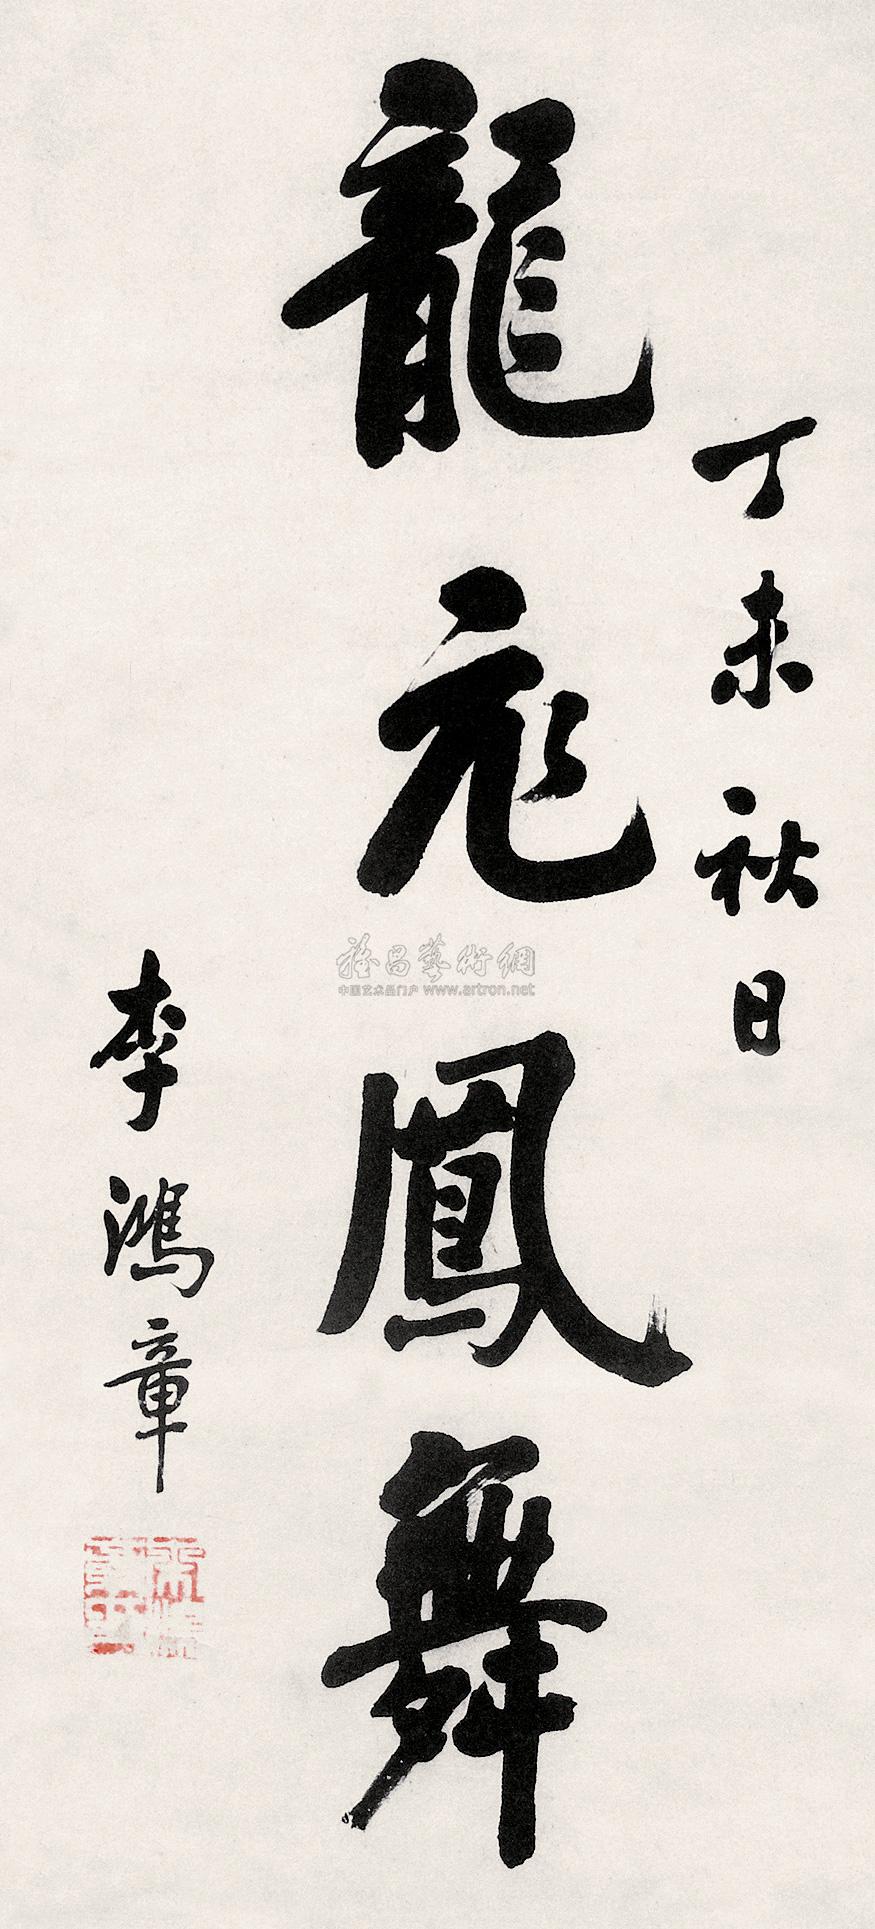 丁未秋日
龍飛鳳舞
李鴻章
雅昌藝術網
中国艺术品门户 www.artron.net